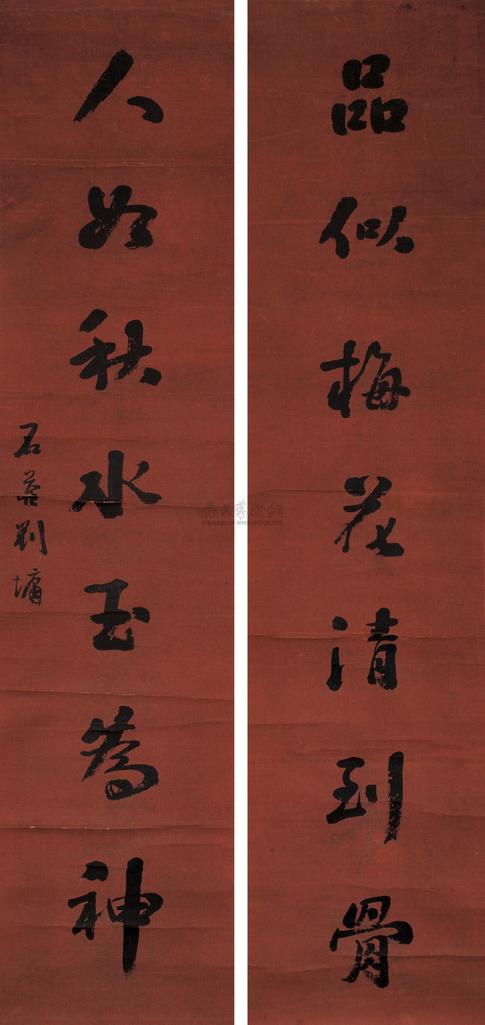 品似梅花清到骨
人如秋水玉為神
石菴劉墉